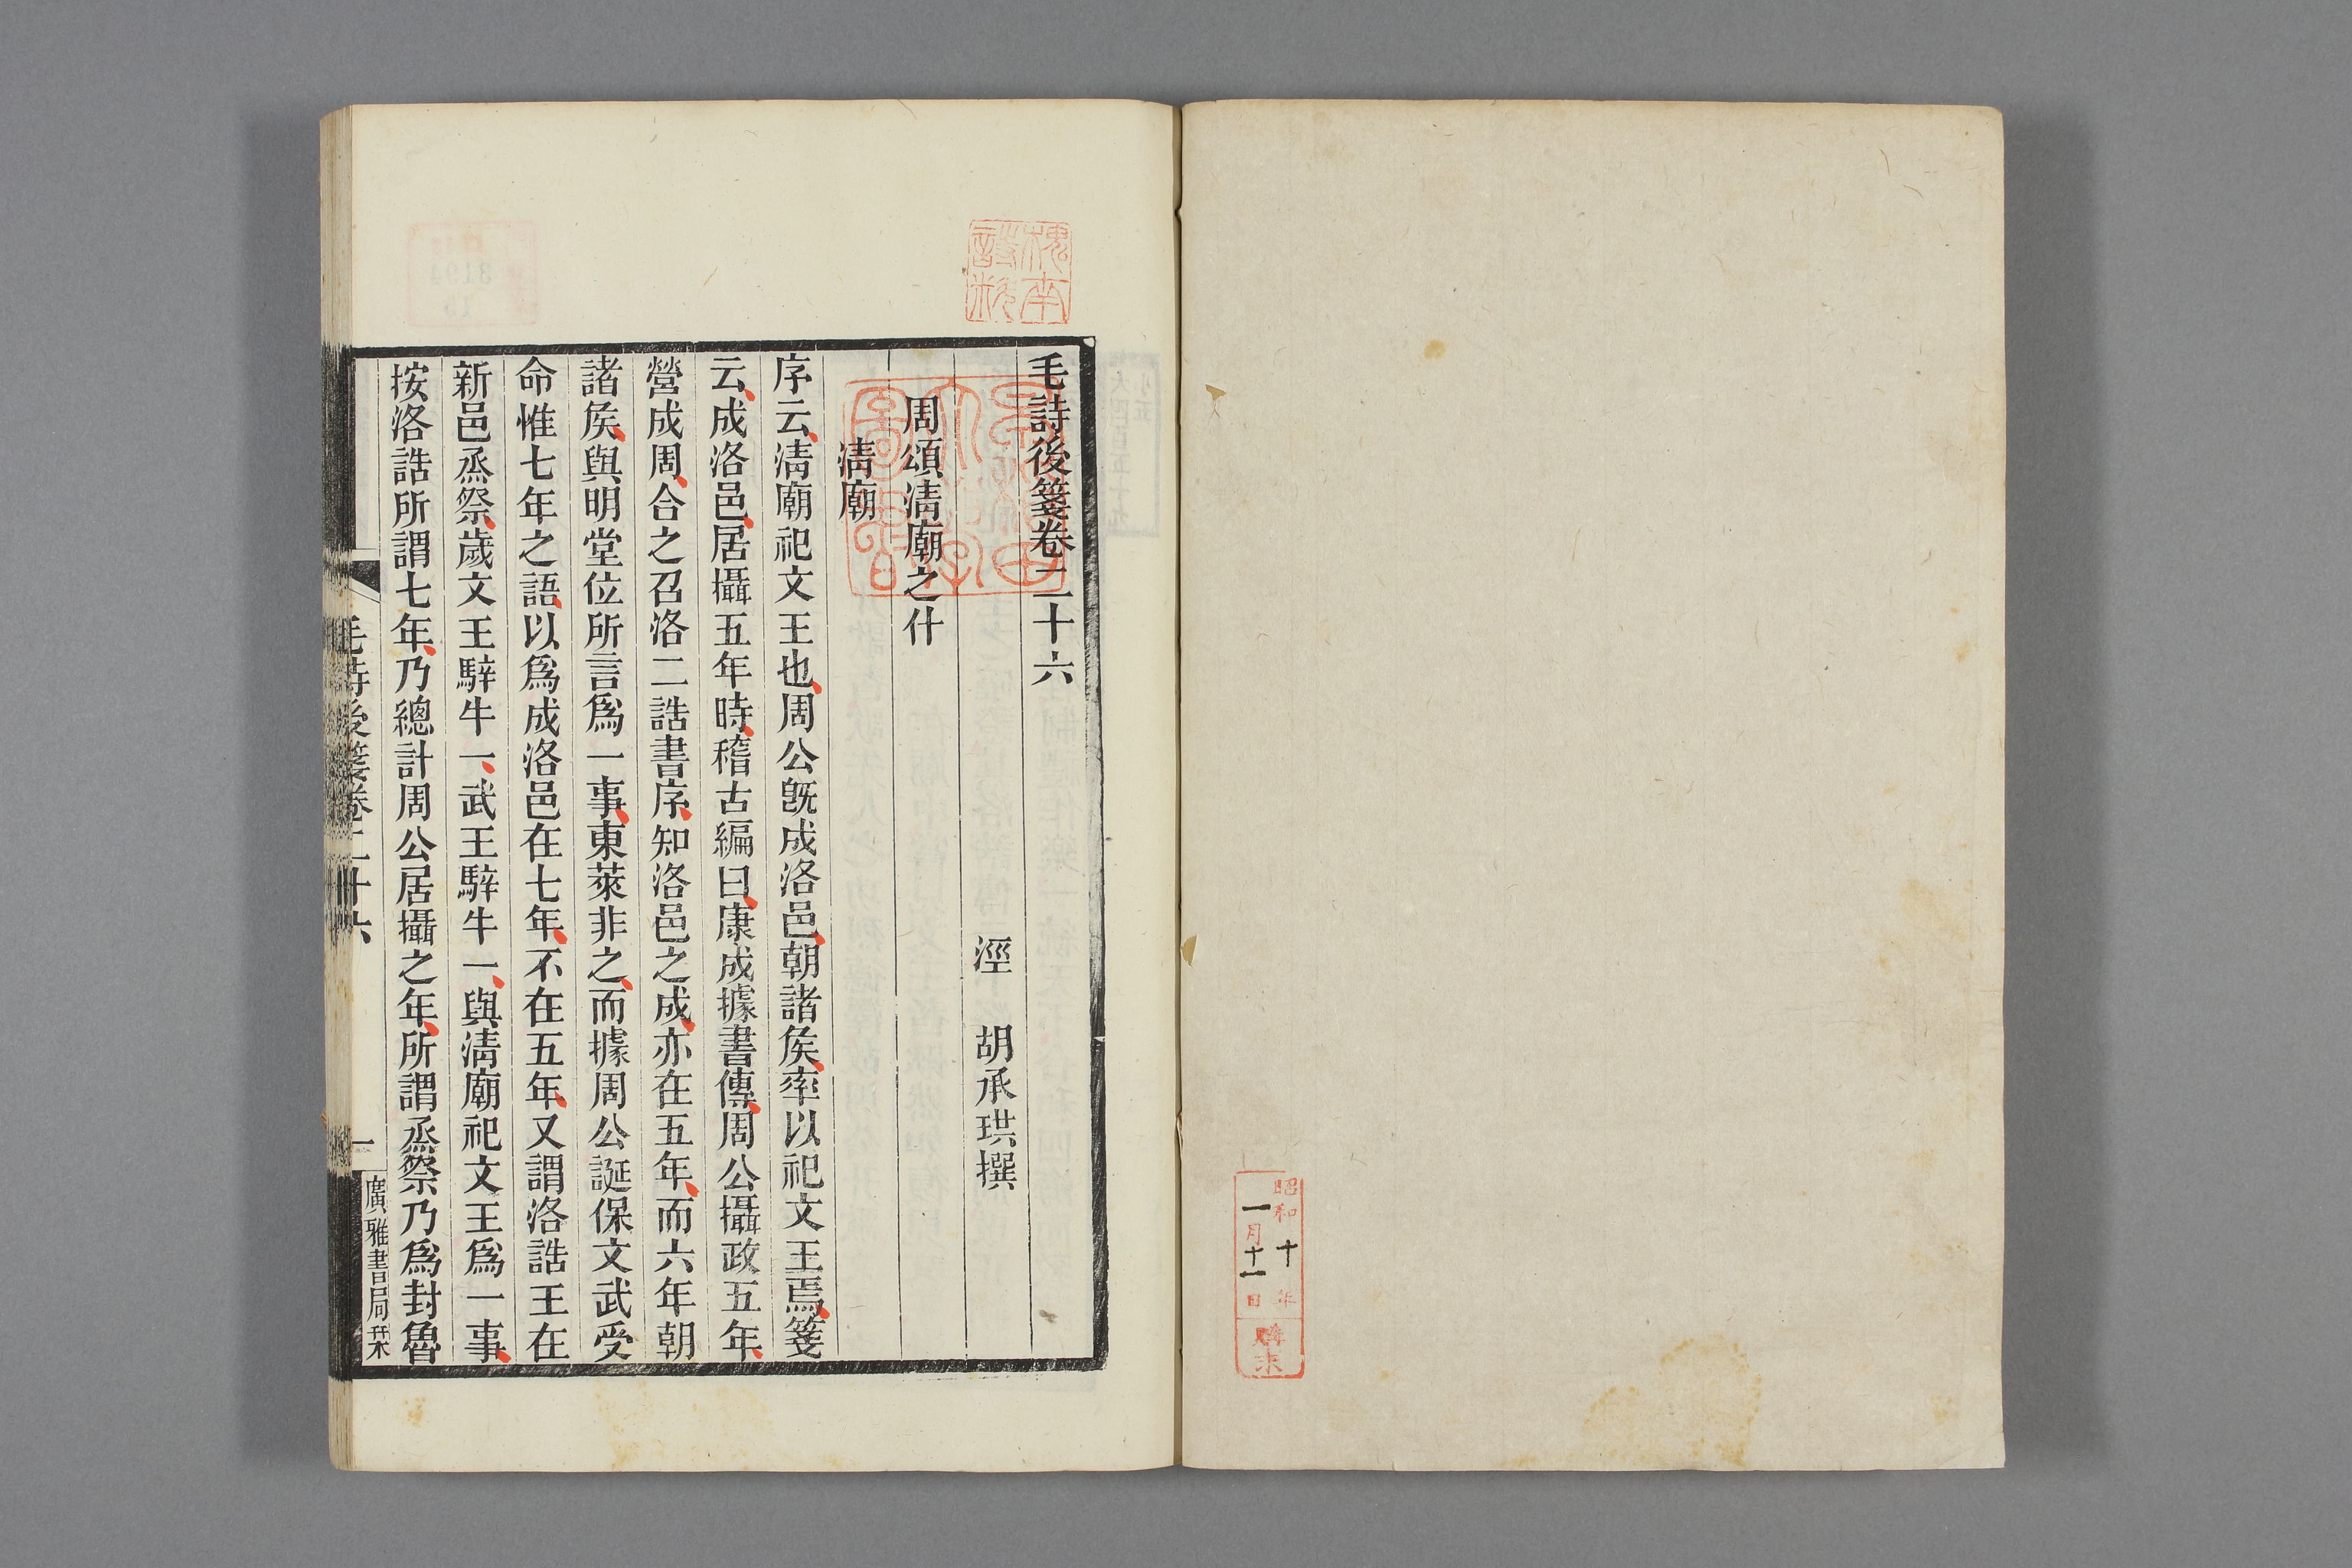 昭和十年
一月十一日
購求
槐南
詩料
毛詩後箋卷二十六
涇　胡承珙撰
周頌清廟之什
清廟
序云清廟祀文王也周公既成洛邑朝諸侯率以祀文王焉箋
云成洛邑居攝五年時稽古編曰康成據書傳周公攝政五年
營成周合之召洛二誥書序知洛邑之成亦在五年而六年朝
諸侯與明堂位所言爲一事東萊非之而據周公誕保文武受
命惟七年之語以爲成洛邑在七年不在五年又謂洛誥王在
新邑烝祭歲文王騂牛一武王騂牛一與清廟祀文王爲一事
按洛誥所謂七年乃總計周公居攝之年所謂烝祭乃爲封魯
毛詩後箋卷二十六
一
廣雅書局栞